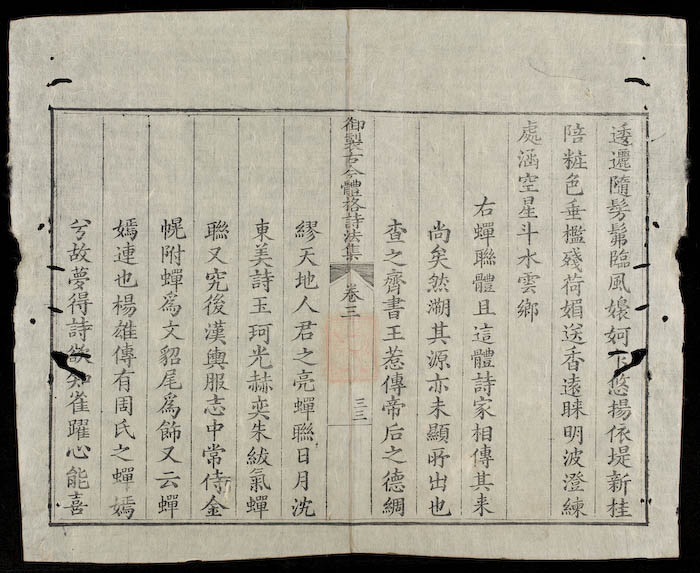 透邐隨髣髴臨風嬝妸下悠揚依堤新桂
陪粧色垂檻殘荷媚送香遠睞明波澄練
處涵空星斗水雲鄉
右蟬聯體且這體詩家相傳其来
尚矣然溯其源亦未顯𠩄出也
查之齊書王惹傳帝后之德綢
御製古今體格詩法集 卷三 三三
繆天地人君之亮蟬聯日月沈
東美詩玉珂光赫奕朱紱氣蟬
聯又究後漢輿服志中常侍金
幌附蟬爲文貂尾爲飾又云蟬
嫣連也楊雄傳有周氏之蟬嫣
兮故夢得詩欲知雀躍心能喜